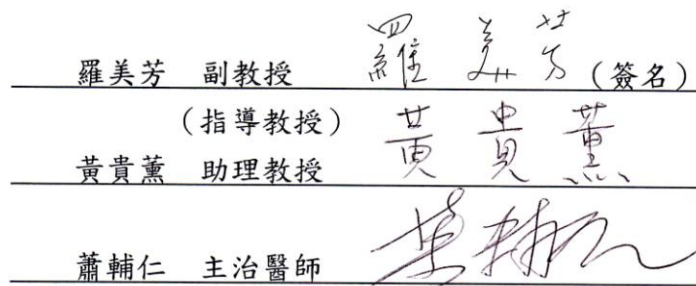 羅美芳 副教授 羅美芳 (簽名)
(指導教授)
黃貴薰 助理教授 黃貴薰
蕭輔仁 主治醫師